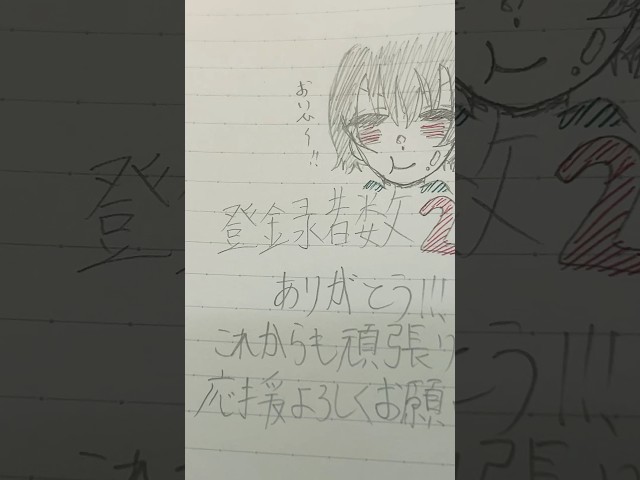 おいしー!!
登録者数2
ありがとう!!!
これからも頑張り
応援よろしくお願